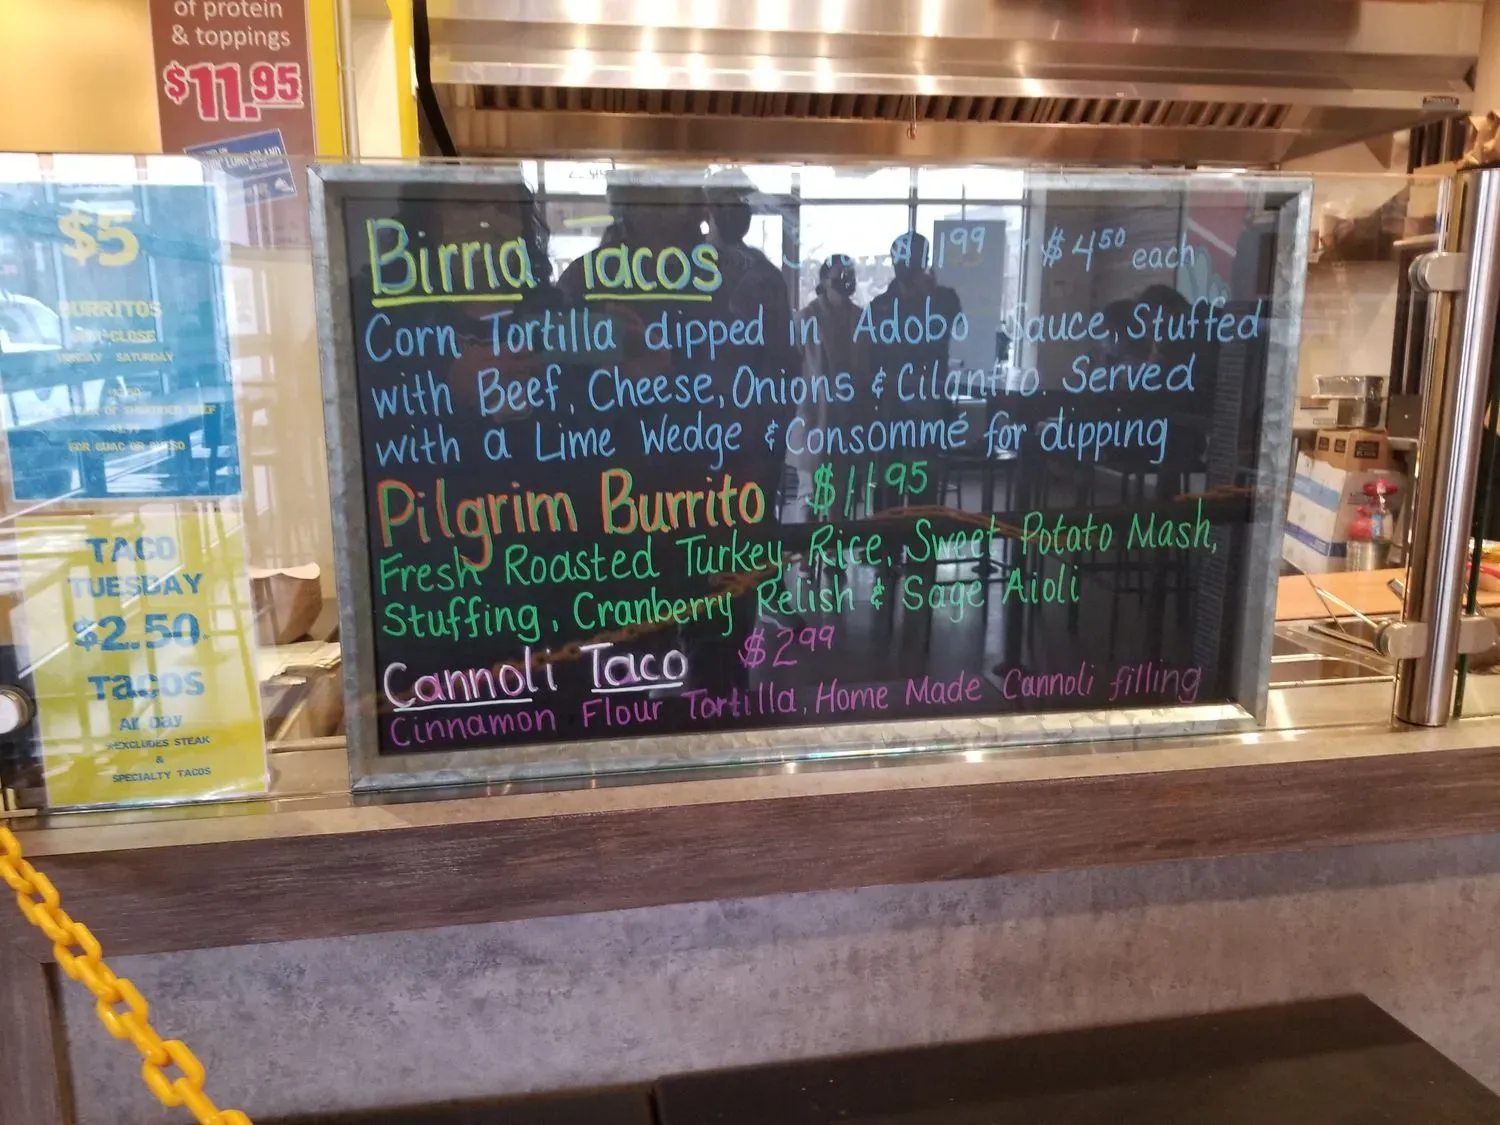 of protein
& toppings
$11.95
LONG ISLAND
$5
BURRITOS
CLOSE
SATURDAY
FOR GUAC OR
TACO
TUESDAY
$2.50
TACOS
All Day
*EXCLUDES STEAK
&
SPECIALTY TACOS
Birria Tacos $11.99 $4.50 each
Corn Tortilla dipped in Adobo Sauce, Stuffed
with Beef, Cheese, Onions & Cilantro. Served
with a Lime Wedge & Consommé for dipping
Pilgrim Burrito $11.95
Fresh Roasted Turkey, Rice, Sweet Potato Mash,
Stuffing, Cranberry Relish & Sage Aioli
Cannoli Taco $2.99
Cinnamon Flour Tortilla, Home Made Cannoli filling